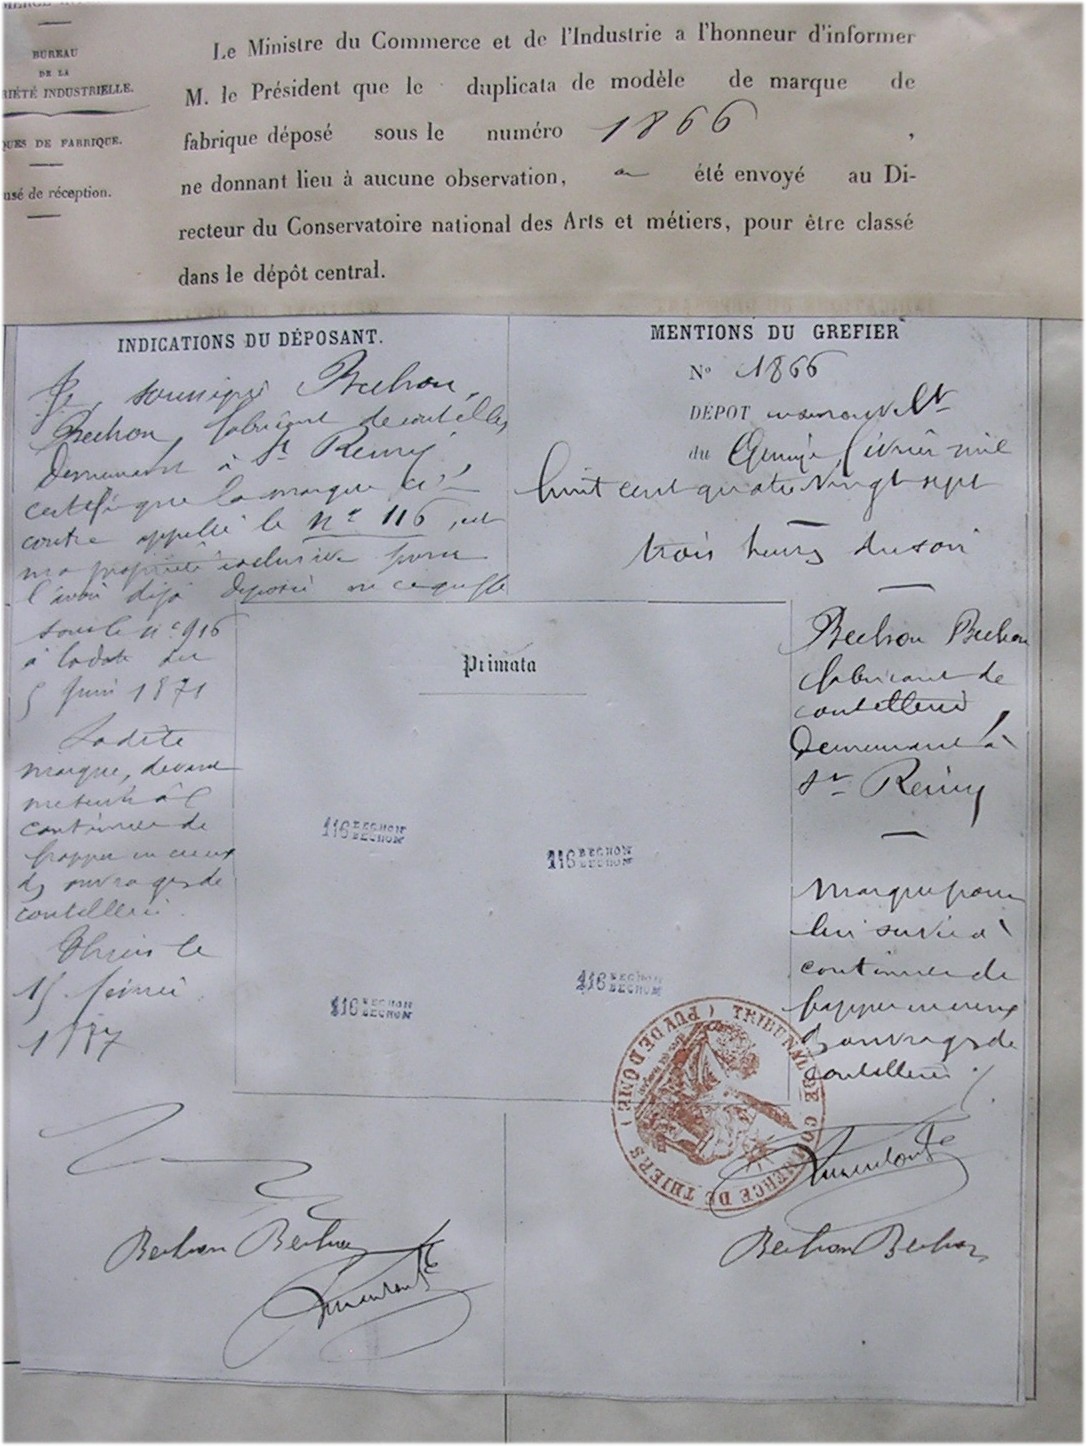 BUREAU
DE LA
RIÉTÉ INDUSTRIELLE.
QUES DE FABRIQUE.
usé de réception.
Le Ministre du Commerce et de l'Industrie a l'honneur d'informer
M. le Président que le duplicata de modèle de marque de
fabrique déposé sous le numéro 1866 ,
ne donnant lieu à aucune observation, a été envoyé au Di-
recteur du Conservatoire national des Arts et métiers, pour être classé
dans le dépôt central.
INDICATIONS DU DÉPOSANT.
Je, soussigné Bechon,
Bechon, fabricant de coutelles,
Demeurant à St Remy,
certifie que la marque ci
contre appelée le n° 116, est
ma propriété exclusive pour
l'avoir déjà déposée au ce greffe
sous le n° 916
à la date du
5 Juin 1871
Ladite
marque, devant
continuer de
frapper en creux
ds ouvrages de
coutellerie.
Thiers le
15 février
1887
Bechon Bechon
MENTIONS DU GREFIER
N° 1866
DÉPOT
du Quinze février mil
huit cent quatre vingt sept
trois heures du soir
Bechon Bechon
fabricant de
coutellerie,
Demeurant à
St Remy
Marque pour
lui servir à
continuer de
frapper en creux
ds ouvrages de
coutellerie.
Bechon Bechon
Primata
116 BECHON
BECHON
116 BECHON
BECHON
116 BECHON
BECHON
116 BECHON
BECHON
TRIBUNAL DE COMMERCE DE THIERS (PUY DE DOME)